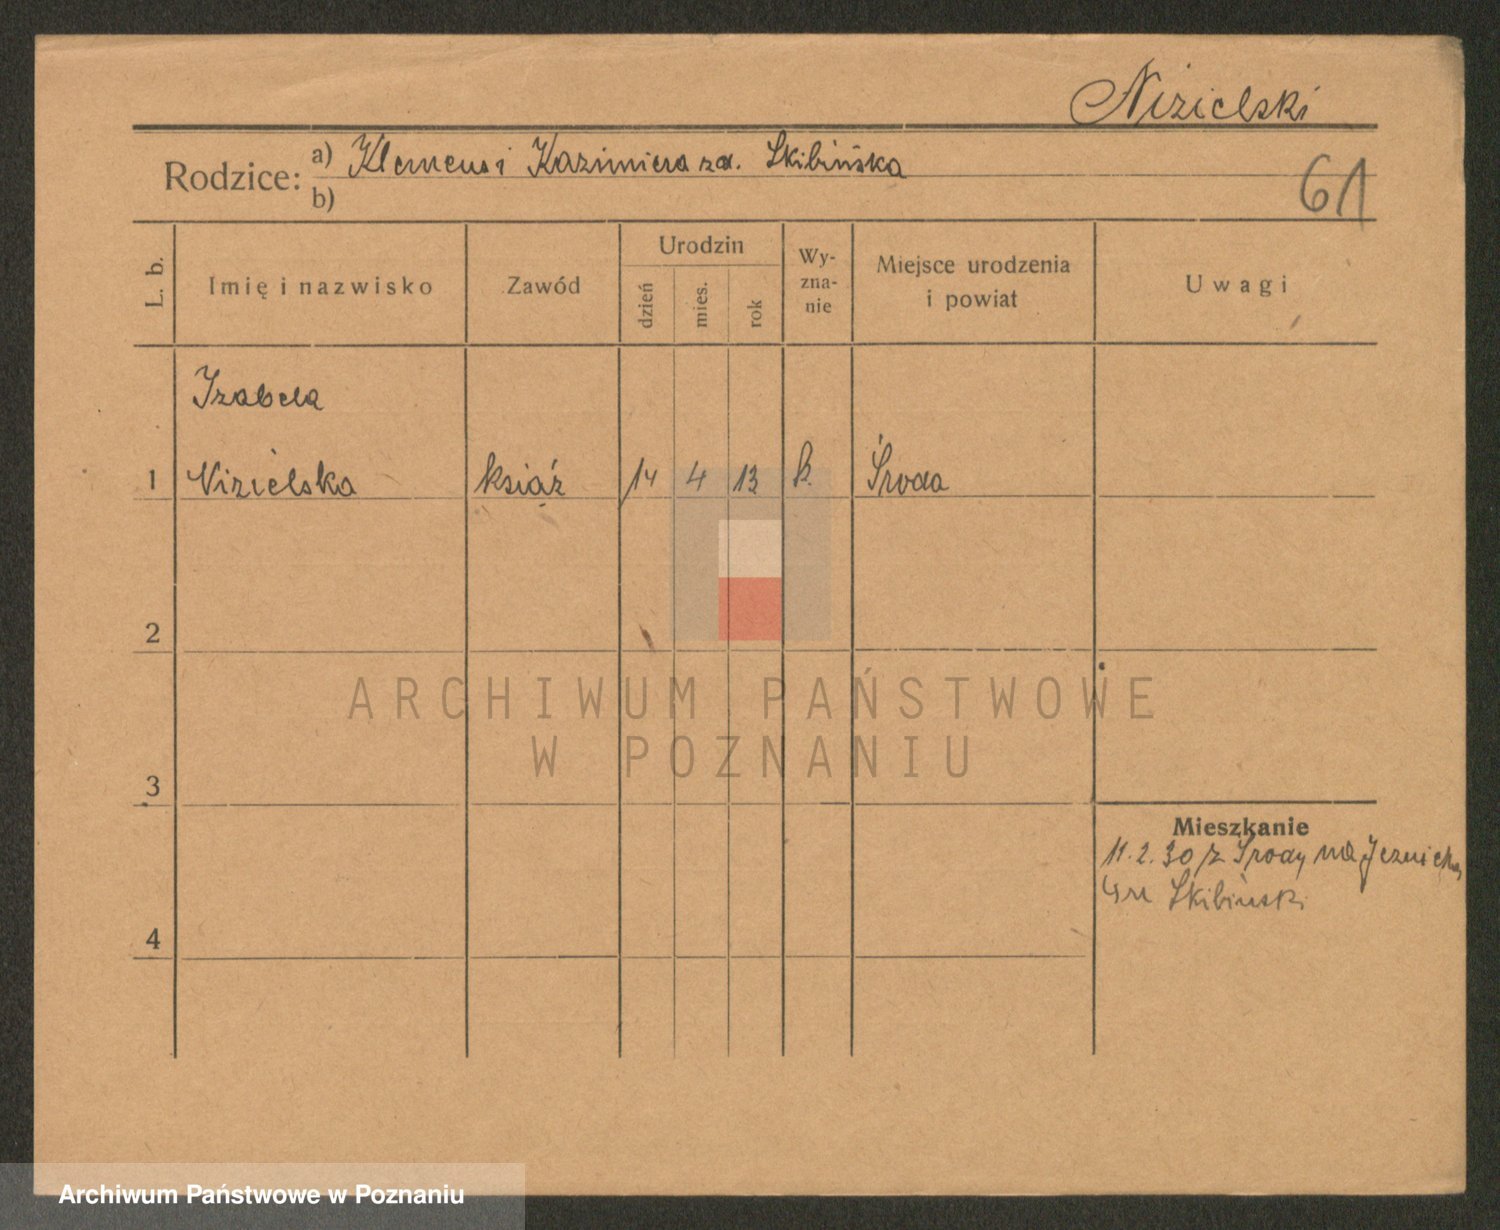 Nizielski
Rodzice: a) Klemens i Kazimiera zd. Skibińska
b)
61
L. b.
Imię i nazwisko
Zawód
Urodzin
dzień
mies.
rok
Wy-
zna-
nie
Miejsce urodzenia
i powiat
Uwagi
Izabela
1 Nizielska książ 14 4 13 k. Środa
2
3
4
Mieszkanie
11.2.30 z Środy na
Skibiński
ARCHIWUM PAŃSTWOWE
W POZNANIU
Archiwum Państwowe w Poznaniu